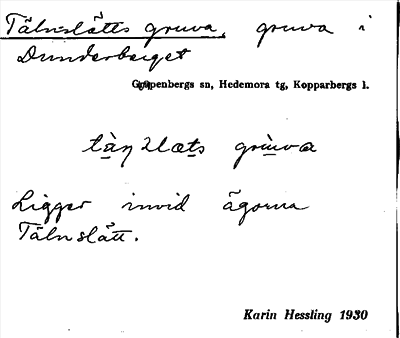 Tälnslätts gruva, gruva i
Dunderberget
Garpenbergs sn, Hedemora tg, Kopparbergs l.
gruva
Ligger invid ägorna
Tälnslätt.
Karin Hessling 1930